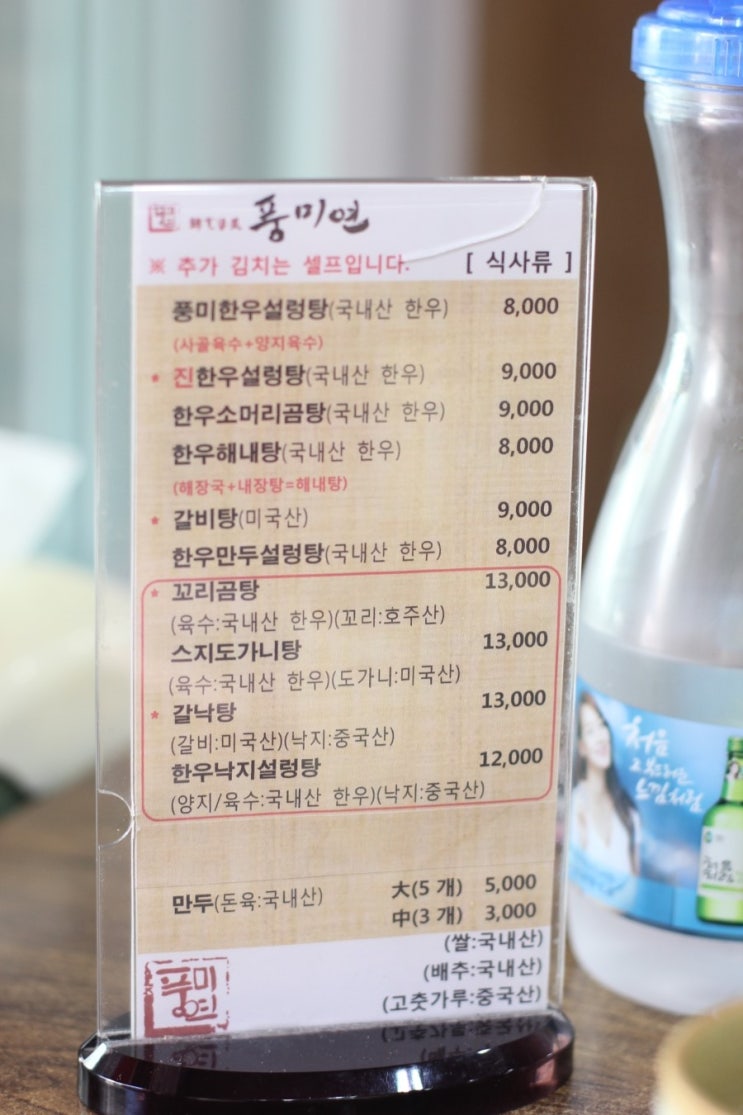 풍미연
※ 추가 김치는 셀프입니다. [ 식사류 ]
풍미한우설렁탕(국내산 한우) 8,000
(사골육수+양지육수)
* 진한우설렁탕(국내산 한우) 9,000
한우소머리곰탕(국내산 한우) 9,000
한우해내탕(국내산 한우) 8,000
(해장국+내장탕=해내탕)
* 갈비탕(미국산) 9,000
한우만두설렁탕(국내산 한우) 8,000
* 꼬리곰탕 13,000
(육수:국내산 한우)(꼬리:호주산)
스지도가니탕 13,000
(육수:국내산 한우)(도가니:미국산)
* 갈낙탕 13,000
(갈비:미국산)(낙지:중국산)
한우낙지설렁탕 12,000
(양지/육수:국내산 한우)(낙지:중국산)
만두(돈육:국내산) 大(5 개) 5,000
中(3 개) 3,000
(쌀:국내산)
(배추:국내산)
(고춧가루:중국산)
풍미연
처음
그 부드러운
느낌처럼